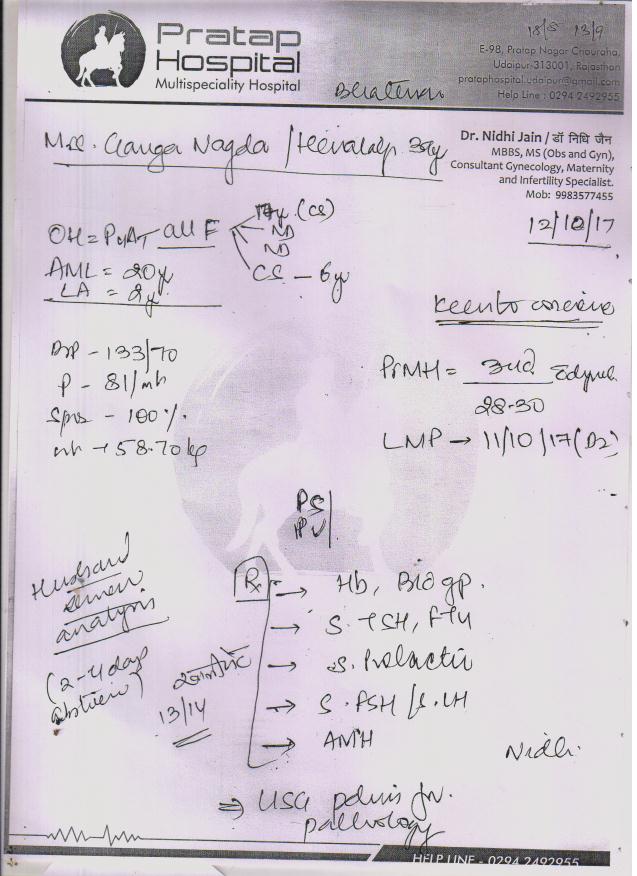 Pratap
Hospital
Multispeciality Hospital
18/5 13/9
E-98, Pratap Nagar Chouraha,
Udaipur-313001, Rajasthan
prataphospital.udaipur@gmail.com
Help Line : 0294 2492955
Mrs. Ganga Nagda /
Dr. Nidhi Jain / डॉ निधि जैन
MBBS, MS (Obs and Gyn),
Consultant Gynecology, Maternity
and Infertility Specialist.
Mob: 9983577455
12/10/17
(CS)
OH = all F
ND
ND
CS - 6y
AML = 20y
LA = 2y
Keen to conceive
BP - 133/70
P - 81/
- 100 %.
wt → 58.70 kg
PrMH =
28-30
LMP → 11/10/17 (D2)
PS
PV
Husband
semen
analysis
(2-4 days
13/14
Rx → Hb, Bld gp.
→ S. TSH, FT4
→ S. Prolactin
→ S. FSH / S. LH
→ AMH
Nidhi.
⇒ USG pelvis for.
pathology
HELP LINE - 0294 2492955